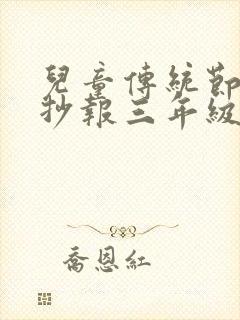 兒童傳統節
抄報三年級
喬恩紅